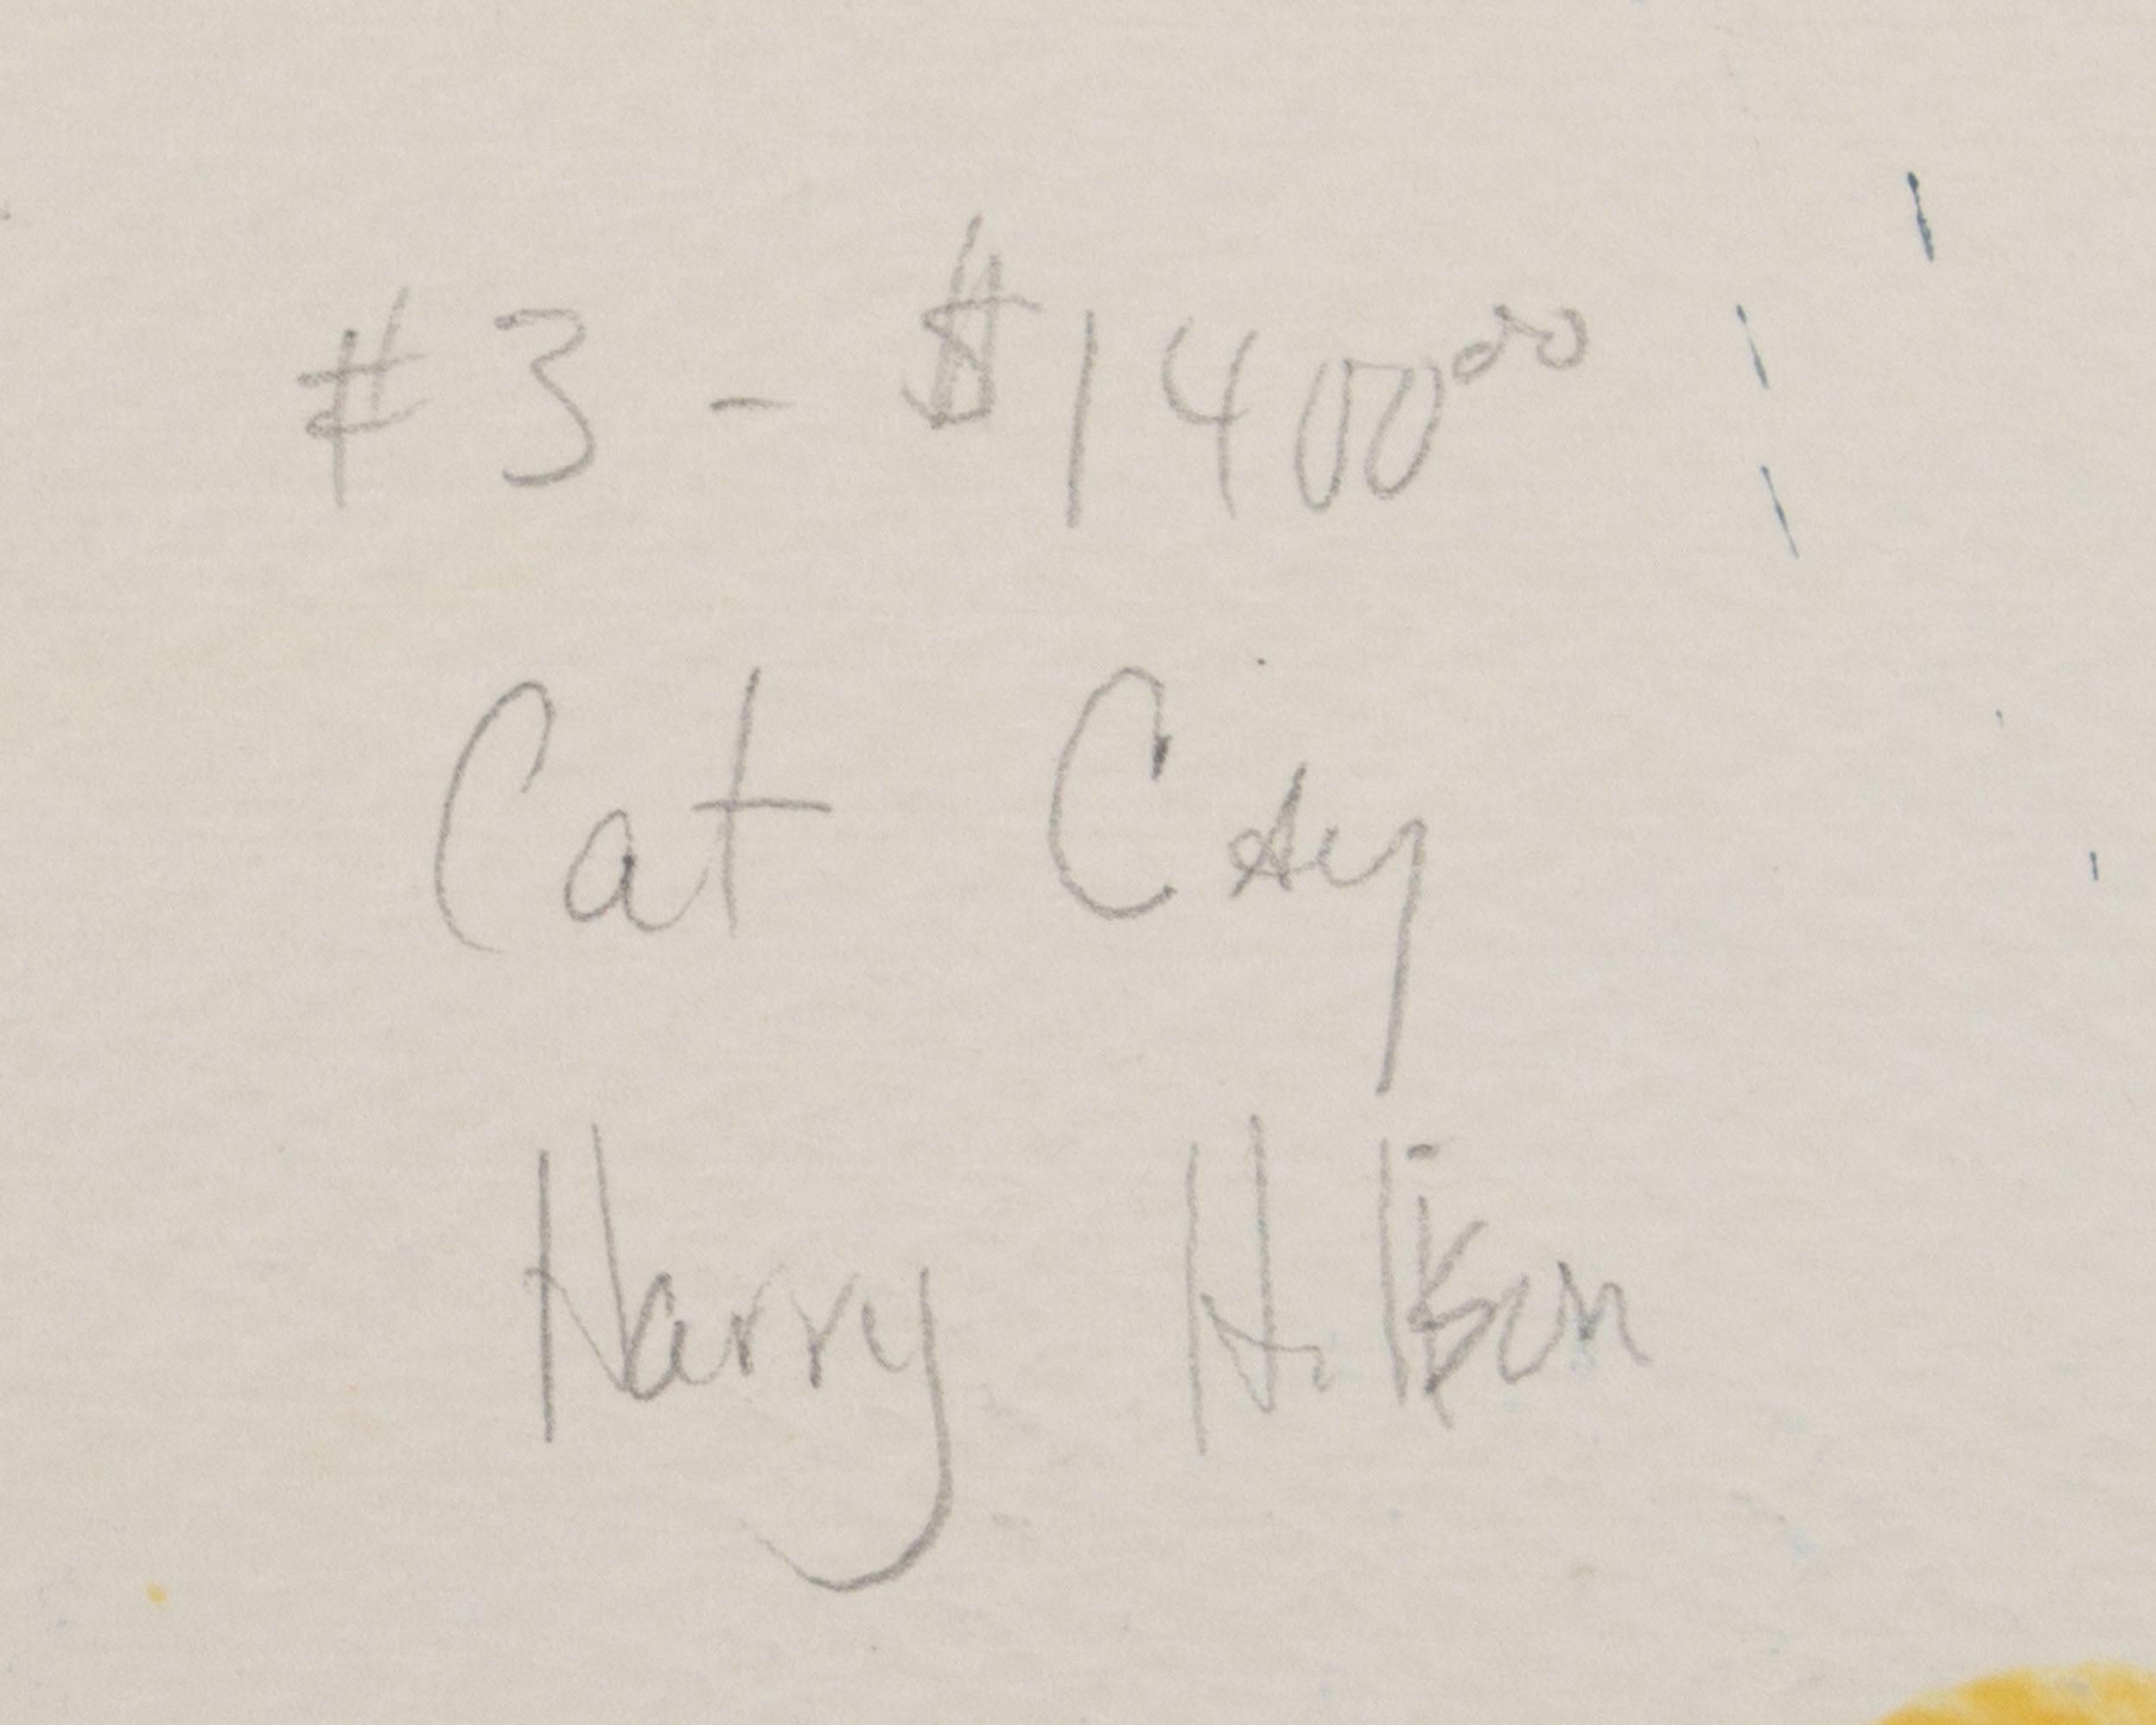 #3 - $1400⁰⁰
Cat Cay
Harry Hilson